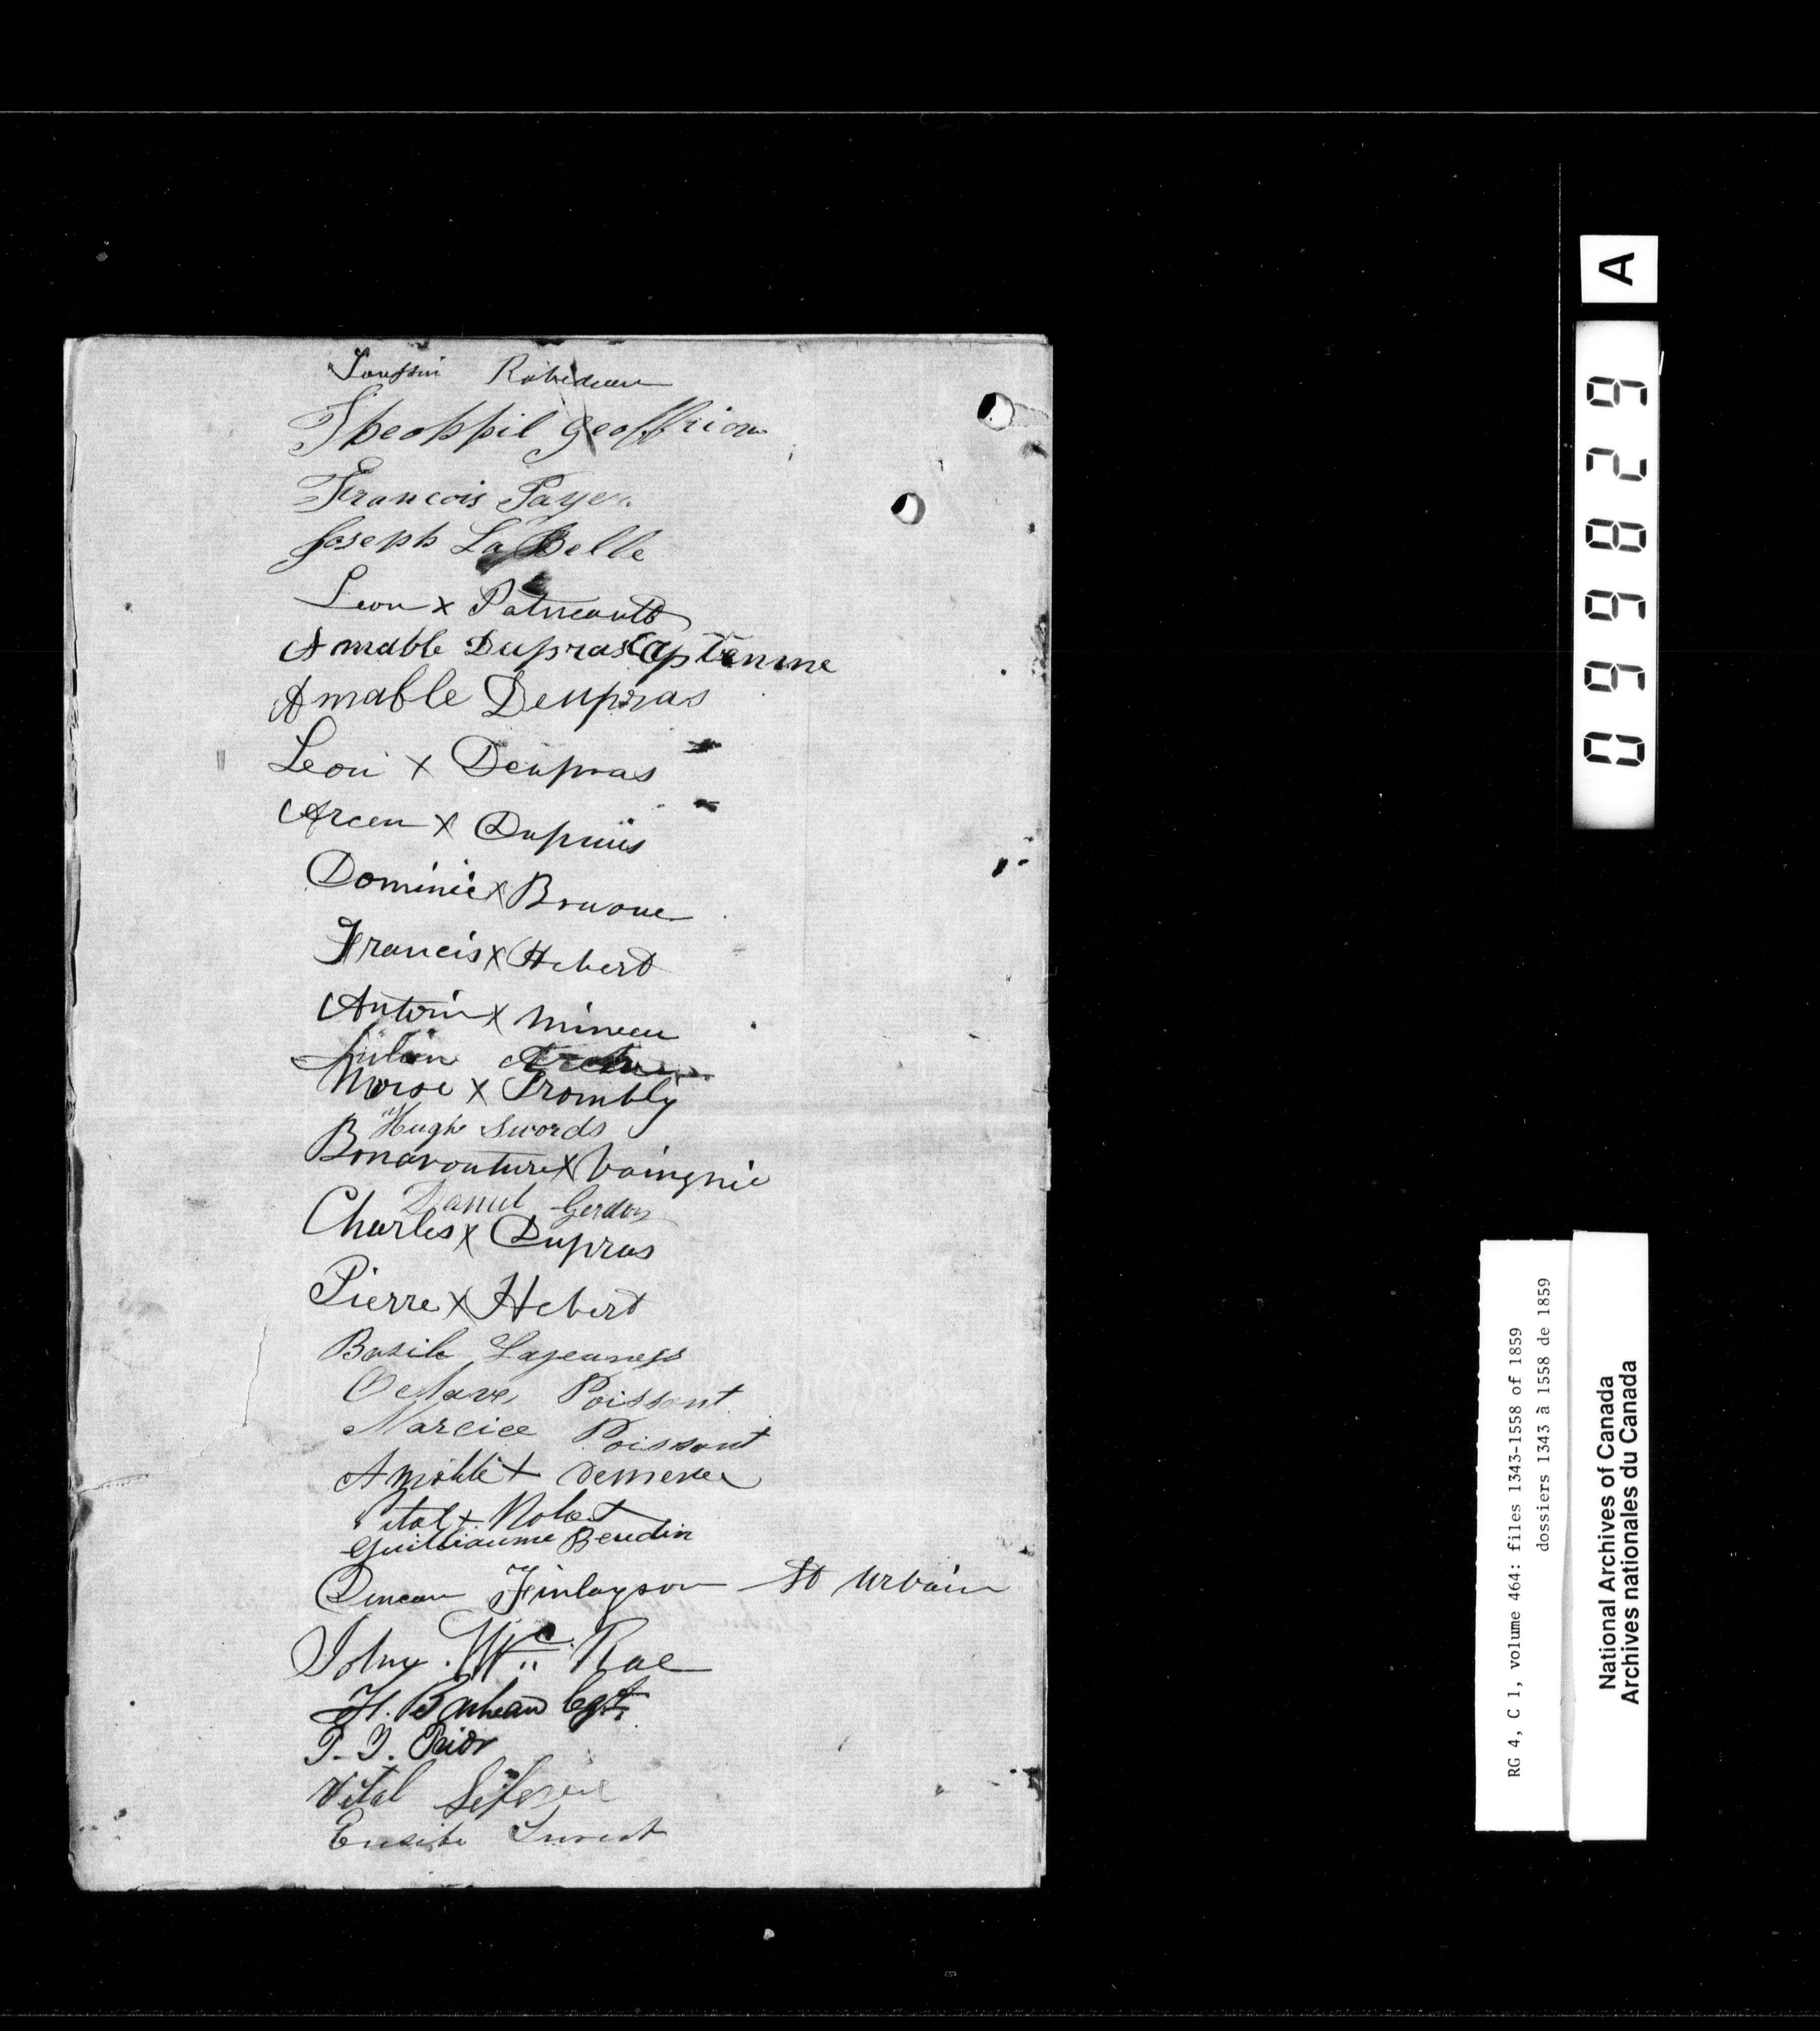 Toussin Robideau
Theophpil Geoffrion
Francois Payer
Joseph La Belle
Leon x Patneault
Amable Dupras Captenine
Amable Deupras
Leon x Deupras
Arcen x Dupuis
Dominic x Brunone
Francis x Hebert
Antoin x Mineau
Julien
Moise x Trombly
Hugh Swords
Bonavonture x Vaingnie
Daniel Gordon
Charles x Dupras
Pierre x Hebert
Basile Lajeuness
Octave Poissant
Narcice Poissant
Amable + Demere
Vital + Robert
Guilliaume Beudin
Duncan Finlayson St Urbain
John Mc Rae
H. Capt.
T. J. Prior
Vital Lefevre
Eusibe
A
099829
RG 4, C 1, volume 464: files 1343-1558 of 1859
dossiers 1343 à 1558 de 1859
National Archives of Canada
Archives nationales du Canada